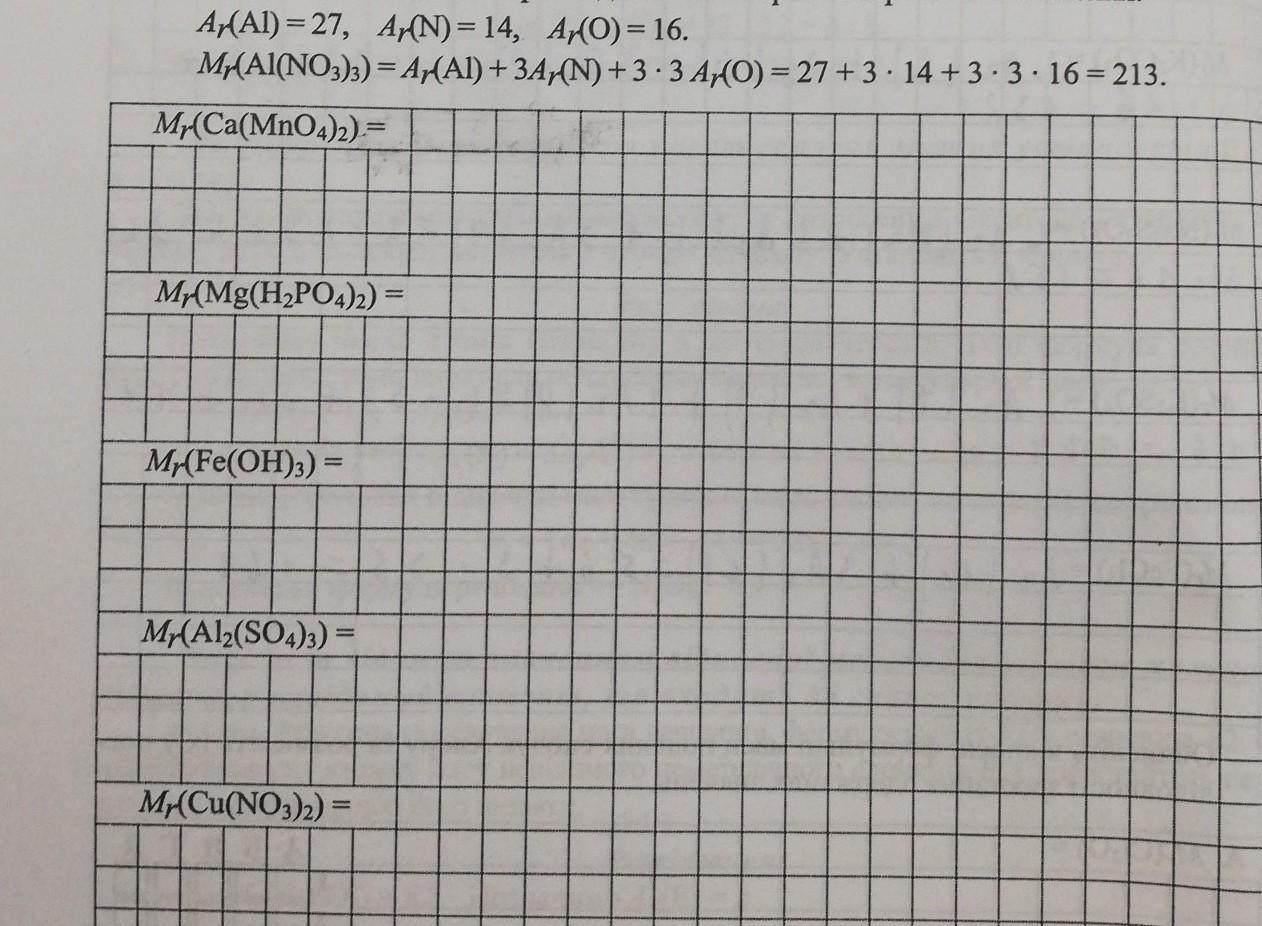 Aᵣ(Al) = 27, Aᵣ(N) = 14, Aᵣ(O) = 16.
Mᵣ(Al(NO₃)₃) = Aᵣ(Al) + 3Aᵣ(N) + 3 · 3 Aᵣ(O) = 27 + 3 · 14 + 3 · 3 · 16 = 213.
Mᵣ(Ca(MnO₄)₂) =
Mᵣ(Mg(H₂PO₄)₂) =
Mᵣ(Fe(OH)₃) =
Mᵣ(Al₂(SO₄)₃) =
Mᵣ(Cu(NO₃)₂) =